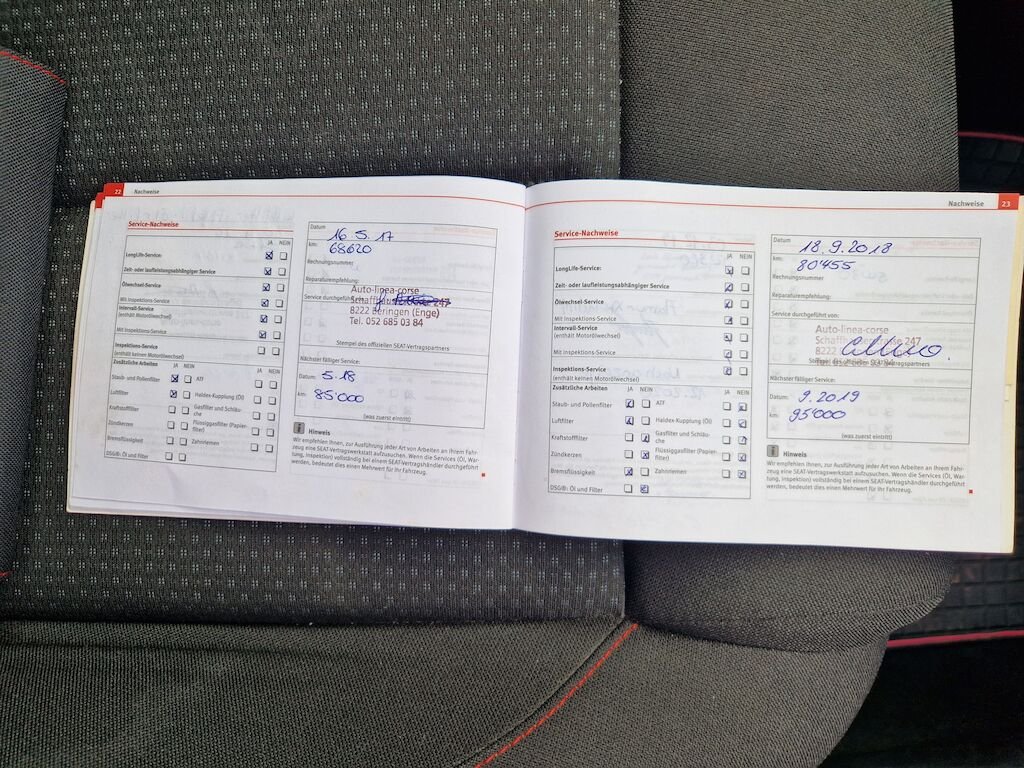 22 Nachweise
Service-Nachweise
JA NEIN
LongLife-Service:
Zeit- oder laufleistungsabhängiger Service
Ölwechsel-Service
Mit Inspektions-Service
Intervall-Service
(enthält Motorölwechsel)
Mit Inspektions-Service
Inspektions-Service
(enthält keinen Motorölwechsel)
Zusätzliche Arbeiten JA NEIN JA NEIN
Staub- und Pollenfilter ATF
Luftfilter Haldex-Kupplung (Öl)
Kraftstofffilter Gasfilter und Schläu-
che
Zündkerzen Flüssiggasfilter (Papier-
filter)
Bremsflüssigkeit Zahnriemen
DSG®: Öl und Filter
Datum 16.5.17
km: 68620
Rechnungsnummer
Reparaturempfehlung:
Service durchgeführt
Auto-linea-corse
247
8222 Beringen (Enge)
Tel. 052 685 03 84
Stempel des offiziellen SEAT-Vertragspartners
Nächster fälliger Service:
Datum: 5.18
km: 85'000
(was zuerst eintritt)
i Hinweis
Wir empfehlen Ihnen, zur Ausführung jeder Art von Arbeiten an Ihrem Fahr-
zeug eine SEAT-Vertragswerkstatt aufzusuchen. Wenn die Services (Öl, War-
tung, Inspektion) vollständig bei einem SEAT-Vertragshändler durchgeführt
werden, bedeutet dies einen Mehrwert für Ihr Fahrzeug.
Nachweise 23
Service-Nachweise
JA NEIN
LongLife-Service:
Zeit- oder laufleistungsabhängiger Service
Ölwechsel-Service
Mit Inspektions-Service
Intervall-Service
(enthält Motorölwechsel)
Mit Inspektions-Service
Inspektions-Service
(enthält keinen Motorölwechsel)
Zusätzliche Arbeiten JA NEIN JA NEIN
Staub- und Pollenfilter ATF
Luftfilter Haldex-Kupplung (Öl)
Kraftstofffilter Gasfilter und Schläu-
che
Zündkerzen Flüssiggasfilter (Papier-
filter)
Bremsflüssigkeit Zahnriemen
DSG®: Öl und Filter
Datum 18.9.2018
km: 80'455
Rechnungsnummer
Reparaturempfehlung:
Service durchgeführt von:
Auto-linea-corse
247
8222
Tel. 052 685 03 84
Stempel des offiziellen SEAT-Vertragspartners
Nächster fälliger Service:
Datum: 9.2019
km: 95'000
(was zuerst eintritt)
i Hinweis
Wir empfehlen Ihnen, zur Ausführung jeder Art von Arbeiten an Ihrem Fahr-
zeug eine SEAT-Vertragswerkstatt aufzusuchen. Wenn die Services (Öl, War-
tung, Inspektion) vollständig bei einem SEAT-Vertragshändler durchgeführt
werden, bedeutet dies einen Mehrwert für Ihr Fahrzeug.